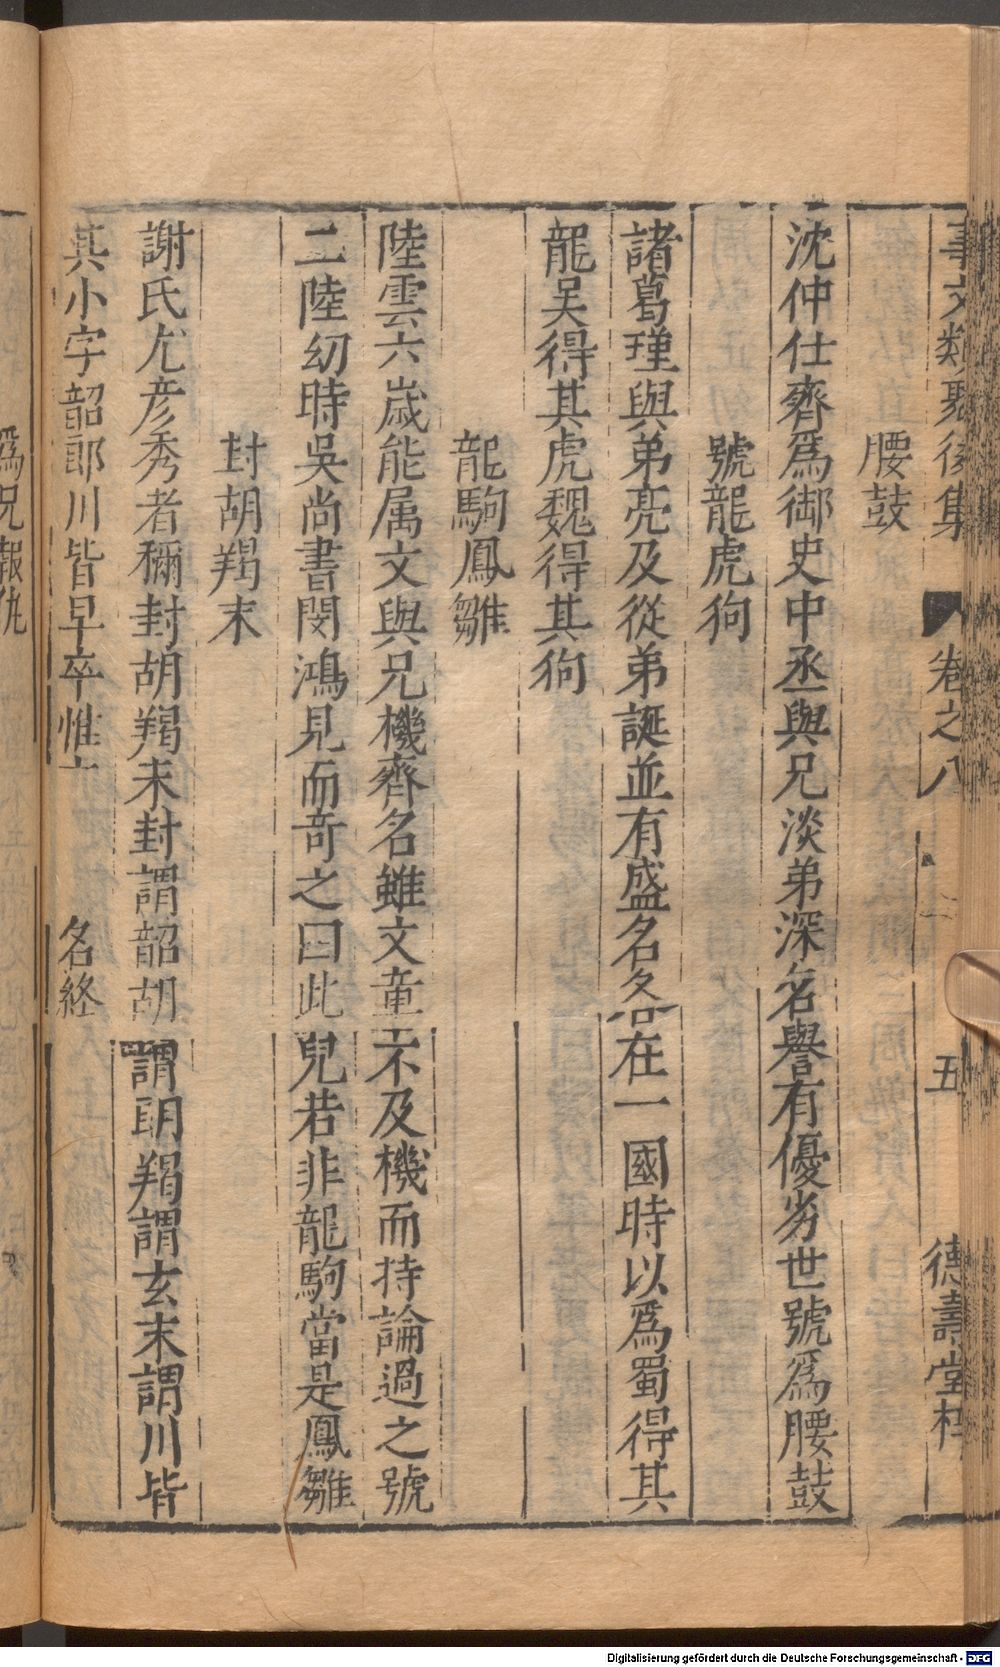 事文類聚後集 卷之八 五 德壽堂梓
腰鼓
沈仲仕齊爲御史中丞與兄淡弟深名譽有優劣世號爲腰鼓
號龍虎狗
諸葛瑾與弟亮及從弟誕並有盛名各在一國時以爲蜀得其
龍吴得其虎魏得其狗
龍駒鳳雛
陸雲六歲能属文與兄機齊名雖文章不及機而持論過之號
二陸幼時吳尚書閔鴻見而奇之曰此兒若非龍駒當是鳳雛
封胡羯末
謝氏尤彦秀者稱封胡羯末封謂韶胡謂朗羯謂玄末謂川皆
其小字韶郎川皆早卒惟 名終
爲兄報仇
Digitalisierung gefördert durch die Deutsche Forschungsgemeinschaft - DFG